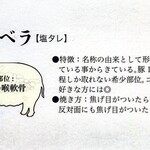 ベラ【塩タレ】
●特徴：名称の由来として形
ている事からきている。豚1
程しか取れない希少部位。コ
好きな方には◎
●焼き方：焦げ目がついたら
反対面にも焦げ目がついたら
部位：
喉軟骨